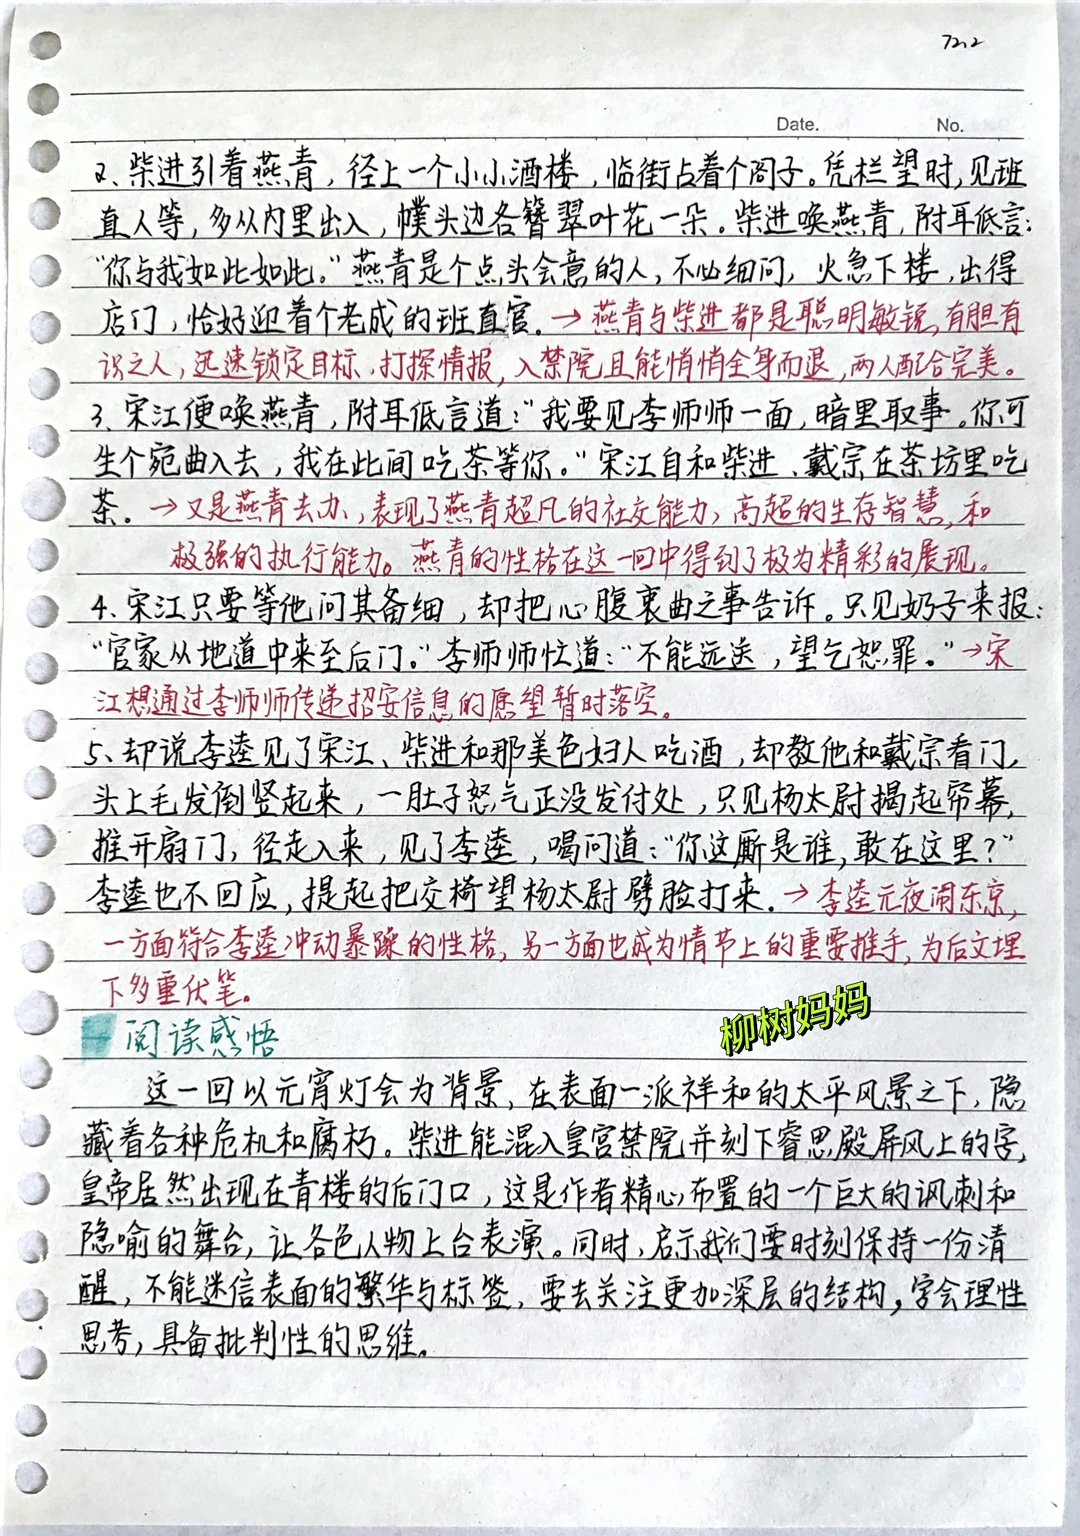 72.2
Date. No.
2、柴进引着燕青，径上一个小小酒楼，临街占着个阁子。凭栏望时，见班
直人等，多从内里出入，幞头边各簪翠叶花一朵。柴进唤燕青，附耳低言：
“你与我如此如此。”燕青是个点头会意的人，不必细问，火急下楼，出得
店门，恰好迎着个老成的班直官。→燕青与柴进都是聪明敏锐，有胆有
识之人，迅速锁定目标，打探情报，入禁院且能悄悄全身而退，两人配合完美。
3、宋江便唤燕青，附耳低言道：“我要见李师师一面，暗里取事。你可
生个宛曲入去，我在此间吃茶等你。”宋江自和柴进、戴宗在茶坊里吃
茶。→又是燕青去办，表现了燕青超凡的社交能力，高超的生存智慧，和
极强的执行能力。燕青的性格在这一回中得到了极为精彩的展现。
4、宋江只要等他问其备细，却把心腹衷曲之事告诉。只见奶子来报：
“官家从地道中来至后门。”李师师忙道：“不能远送，望乞恕罪。”→宋
江想通过李师师传递招安信息的愿望暂时落空。
5、却说李逵见了宋江、柴进和那美色妇人吃酒，却教他和戴宗看门，
头上毛发倒竖起来，一肚子怒气正没发付处，只见杨太尉揭起帘幕，
推开扇门，径走入来，见了李逵，喝问道：“你这厮是谁，敢在这里？”
李逵也不回应，提起把交椅望杨太尉劈脸打来。→李逵元夜闹东京，
一方面符合李逵冲动暴躁的性格，另一方面也成为情节上的重要推手，为后文埋
下多重伏笔。
柳树妈妈
阅读感悟
这一回以元宵灯会为背景，在表面一派祥和的太平风景之下，隐
藏着各种危机和腐朽。柴进能混入皇宫禁院并刻下睿思殿屏风上的字，
皇帝居然出现在青楼的后门口，这是作者精心布置的一个巨大的讽刺和
隐喻的舞台，让各色人物上台表演。同时，启示我们要时刻保持一份清
醒，不能迷信表面的繁华与标签，要去关注更加深层的结构，学会理性
思考，具备批判性的思维。